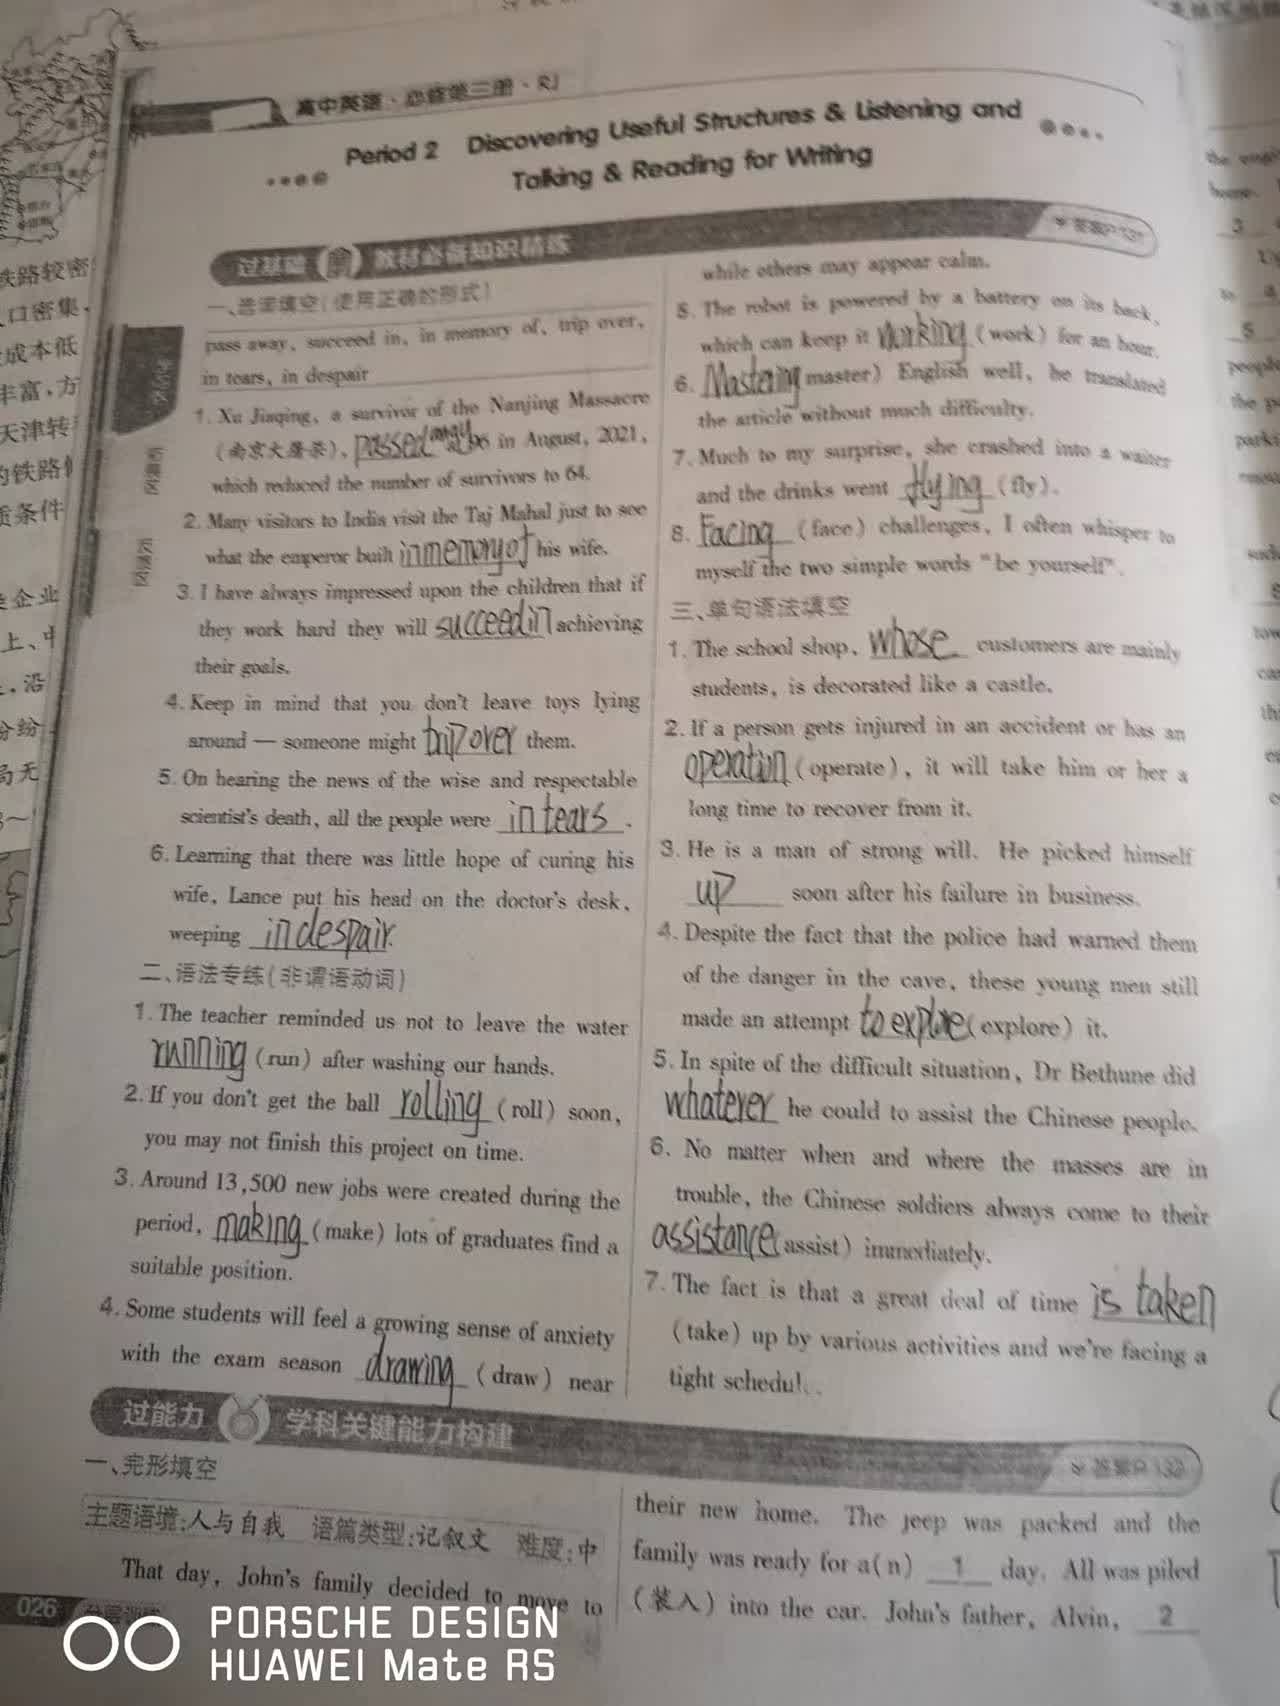 高中英语·必修第三册·RJ
Period 2 Discovering Useful Structures & Listening and
Talking & Reading for Writing
过基础 教材必备知识精练
答案P131
一、选词填空(使用正确的形式)
pass away, succeed in, in memory of, trip over,
in tears, in despair
1. Xu Jiaqing, a survivor of the Nanjing Massacre
(南京大屠杀), passed away 96 in August, 2021,
which reduced the number of survivors to 64.
2. Many visitors to India visit the Taj Mahal just to see
what the emperor built in memory of his wife.
3. I have always impressed upon the children that if
they work hard they will succeed in achieving
their goals.
4. Keep in mind that you don't leave toys lying
around — someone might trip over them.
5. On hearing the news of the wise and respectable
scientist's death, all the people were in tears.
6. Learning that there was little hope of curing his
wife, Lance put his head on the doctor's desk,
weeping in despair.
二、语法专练(非谓语动词)
1. The teacher reminded us not to leave the water
running (run) after washing our hands.
2. If you don't get the ball rolling (roll) soon,
you may not finish this project on time.
3. Around 13,500 new jobs were created during the
period, making (make) lots of graduates find a
suitable position.
4. Some students will feel a growing sense of anxiety
with the exam season drawing (draw) near
while others may appear calm.
5. The robot is powered by a battery on its back,
which can keep it working (work) for an hour.
6. Mastering master) English well, he translated
the article without much difficulty.
7. Much to my surprise, she crashed into a waiter
and the drinks went flying (fly).
8. Facing (face) challenges, I often whisper to
myself the two simple words "be yourself".
三、单句语法填空
1. The school shop, whose customers are mainly
students, is decorated like a castle.
2. If a person gets injured in an accident or has an
operation (operate), it will take him or her a
long time to recover from it.
3. He is a man of strong will. He picked himself
up soon after his failure in business.
4. Despite the fact that the police had warned them
of the danger in the cave, these young men still
made an attempt to explore (explore) it.
5. In spite of the difficult situation, Dr Bethune did
whatever he could to assist the Chinese people.
6. No matter when and where the masses are in
trouble, the Chinese soldiers always come to their
assistance (assist) immediately.
7. The fact is that a great deal of time is taken
(take) up by various activities and we're facing a
tight schedul
过能力 学科关键能力构建
答案P132
一、完形填空
主题语境:人与自我 语篇类型:记叙文 难度:中
That day, John's family decided to move to
their new home. The jeep was packed and the
family was ready for a(n) 1 day. All was piled
(装入) into the car. John's father, Alvin, 2
026
PORSCHE DESIGN
HUAWEI Mate RS
铁路较密
口密集,
成本低
丰富,方
天津转
的铁路
质条件
企业
上、中
沿
纷
局无